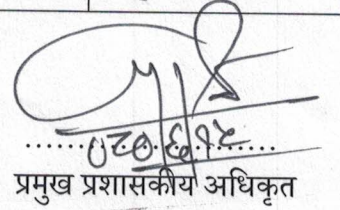 ०८०।६।१८
प्रमुख प्रशासकीय अधिकृत